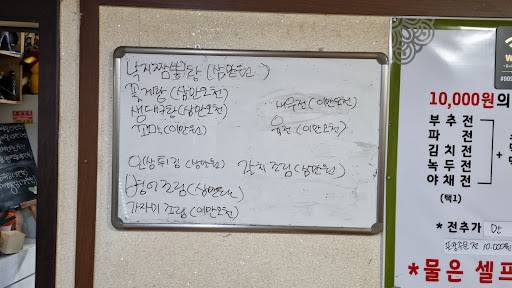 낙지짬뽕탕 (삼만원)
꽃게탕 (삼만오천)
생대구탕 (삼만오천)
꼬막 (이만원)
새우전 (이만오천)
육전 (이만오천)
(삼만원)
갈치조림 (삼만원)
병어조림 (삼만오천)
가자미조림 (이만오천)
10,000원의
부추전
파전
김치전
녹두전
야채전
(택1)
+
* 전추가
10.000원
*물은 셀프